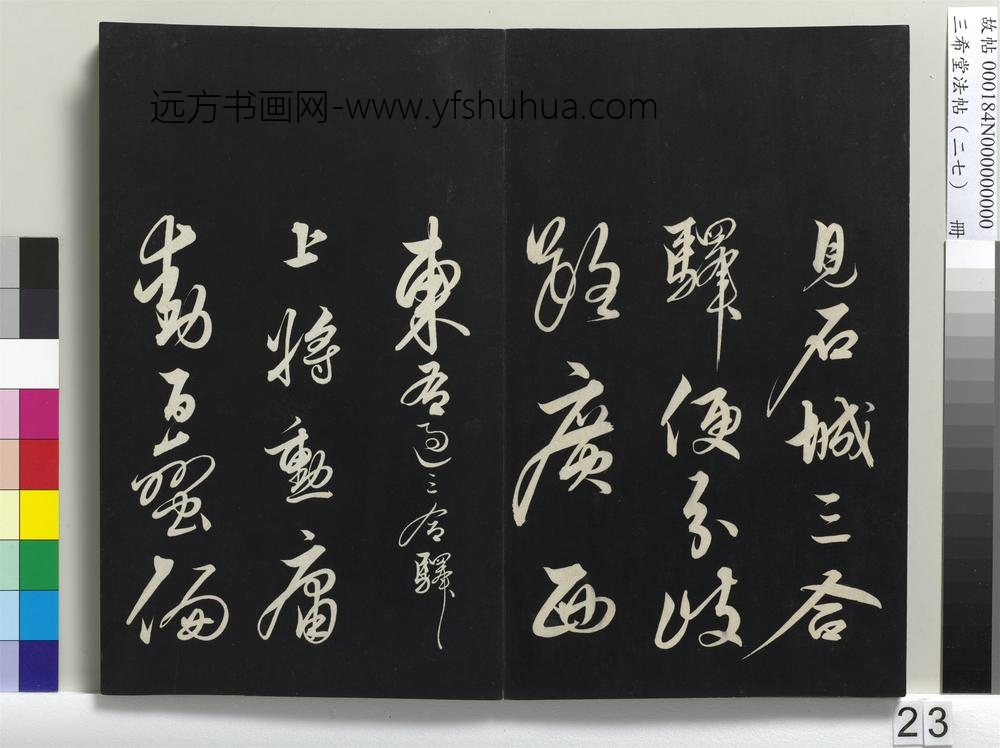 見石城三合
驛便分歧
路廣西
東右過三合驛
上將勳庸
動百蠻偏
远方书画网-www.yfshuhua.com
故帖 000184N000000000
三希堂法帖（二七） 冊
23